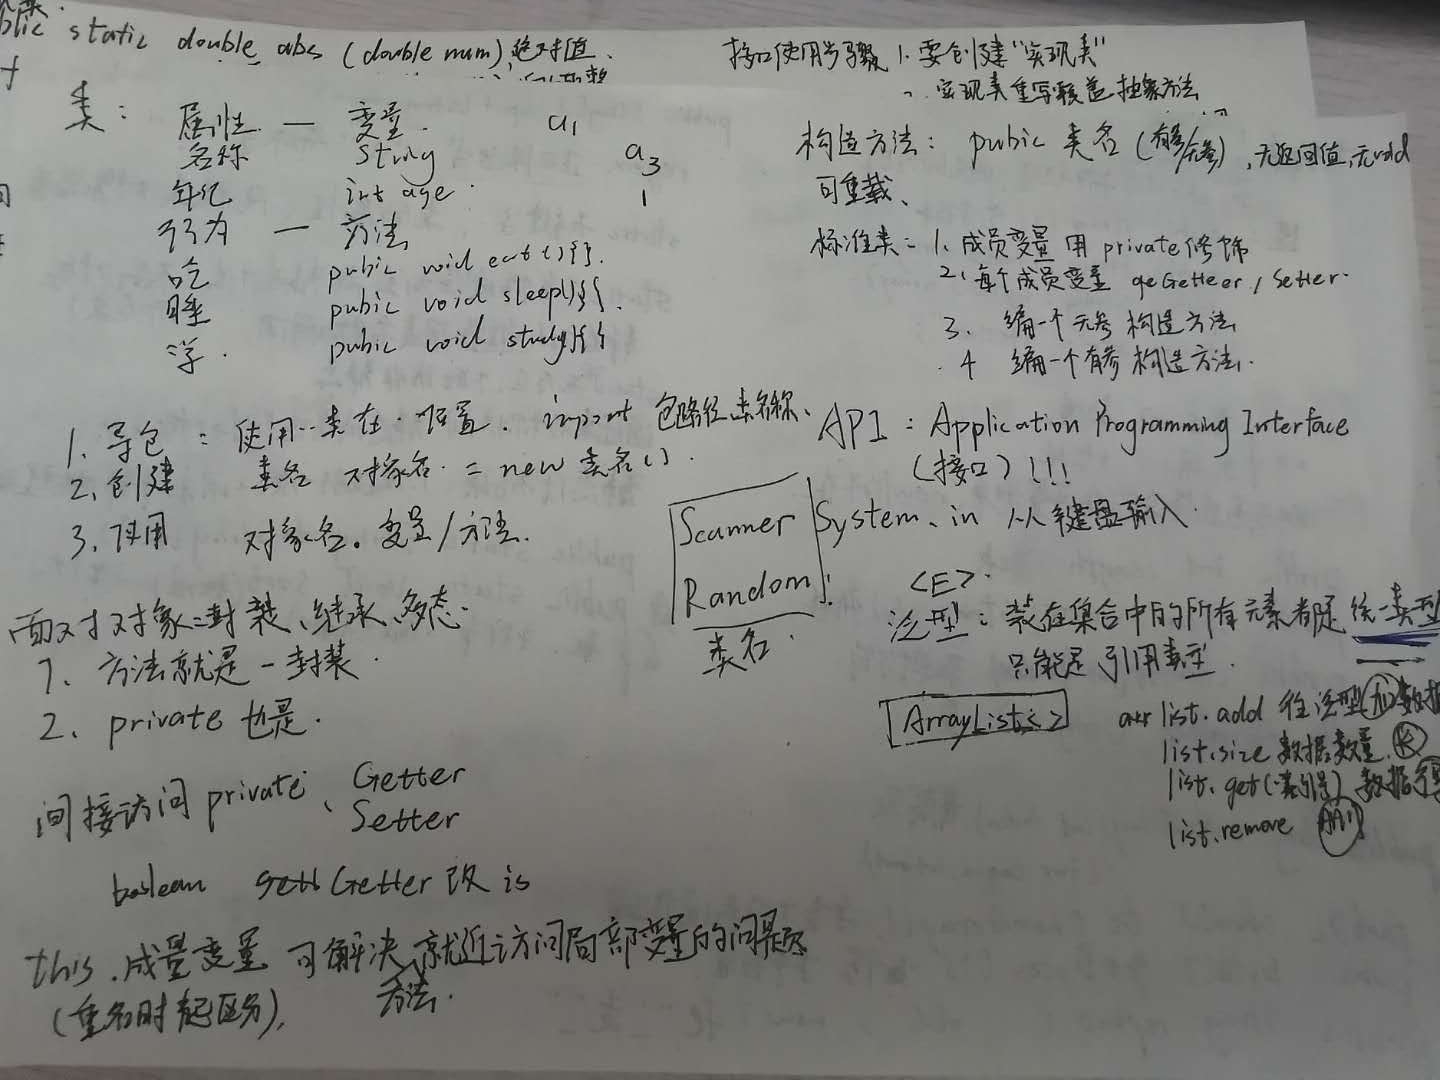 public static double abs (double num) 绝对值、
类： 属性 — 变量. a1
名称 String a3
年纪 int age 1
行为 — 方法
吃 pubic void eat(){}.
睡 pubic void sleep(){}.
学. pubic void study(){}
1. 导包 : 使用..类在..位置. import 包路径.类名称、
2. 创建 类名 对象名 = new 类名().
3. 使用 对象名。变量/方法.
面对对象=封装、继承、多态.
1. 方法就是一封装.
2. private 也是.
间接访问 private、Getter
Setter
boolean Getter 改 is
this .成量变量 可解决就近访问局部变量的问题
方法.
(重名时起区分),
接口使用步骤 1. 要创建“实现类”
实现类重写覆盖抽象方法
构造方法： pubic 类名 (有参/无参) , 无返回值,无void
可重载、
标准类= 1. 成员变量 用 private 修饰
2. 每个成员变量 geGetteer / Setter.
3. 编一个无参构造方法
4 编一个有参构造方法.
API : Application Programming Interface
(接口) !!!
Scanner System、in 从键盘输入.
Random
类名.
<E>.
泛型: 装在集合中的所有元素都是统一类型
只能是引用类型.
ArrayList<> list.add 往泛型加数据
list.size 数据数量.
list.get(索引号) 数据
list.remove